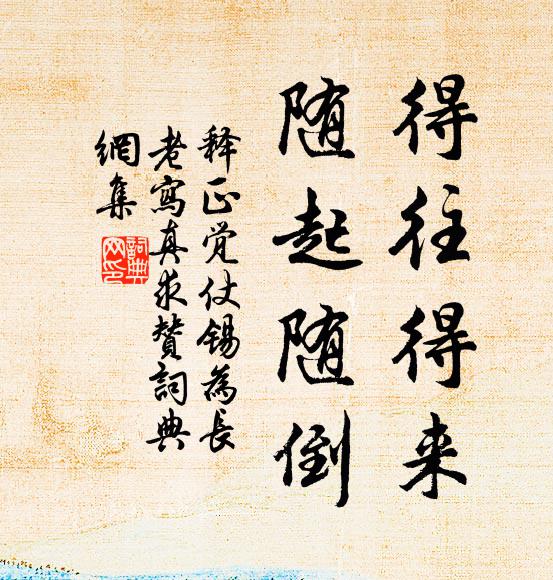 得往得来
随起随倒
释正觉仗锡为长
老寫真求赞詞典
網集
詞典
网印